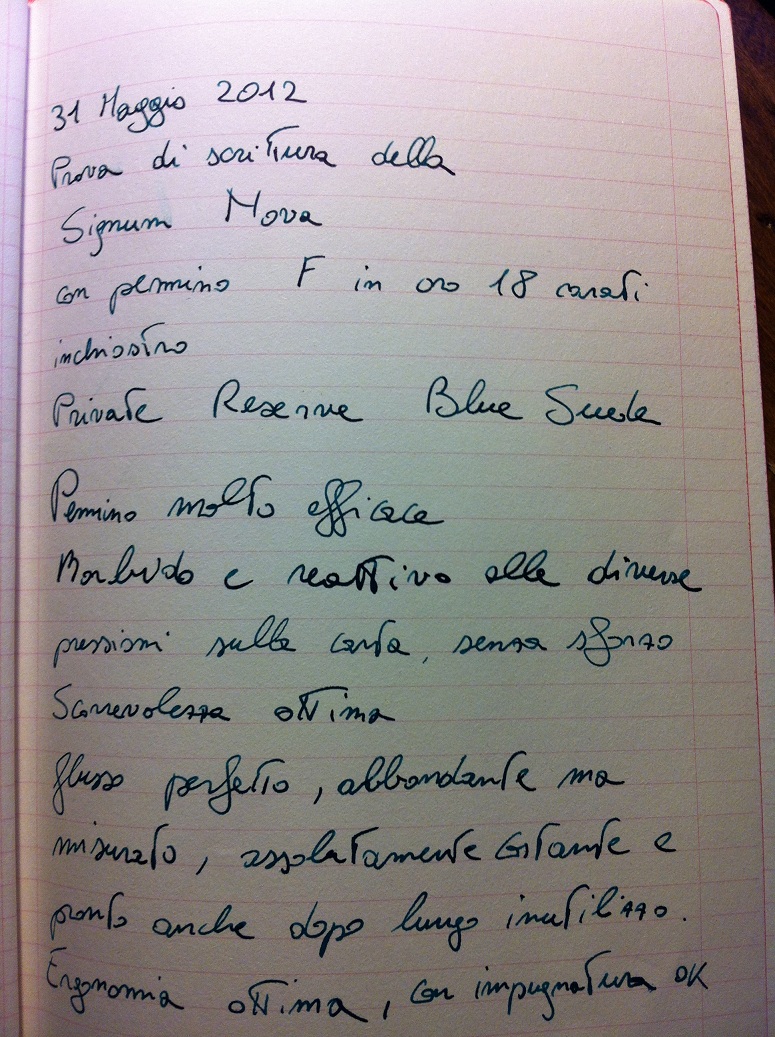 31 Maggio 2012
Prova di scrittura della
Signum Nova
con pennino F in oro 18 carati
inchiostro
Private Reserve Blue Suede
Pennino molto efficace
Morbido e reattivo alle diverse
pressioni sulla carta, senza sforzo
Scorrevolezza ottima
flusso perfetto, abbondante ma
misurato, assolutamente costante e
pronto anche dopo lungo inutilizzo.
Ergonomia ottima, con impugnatura OK